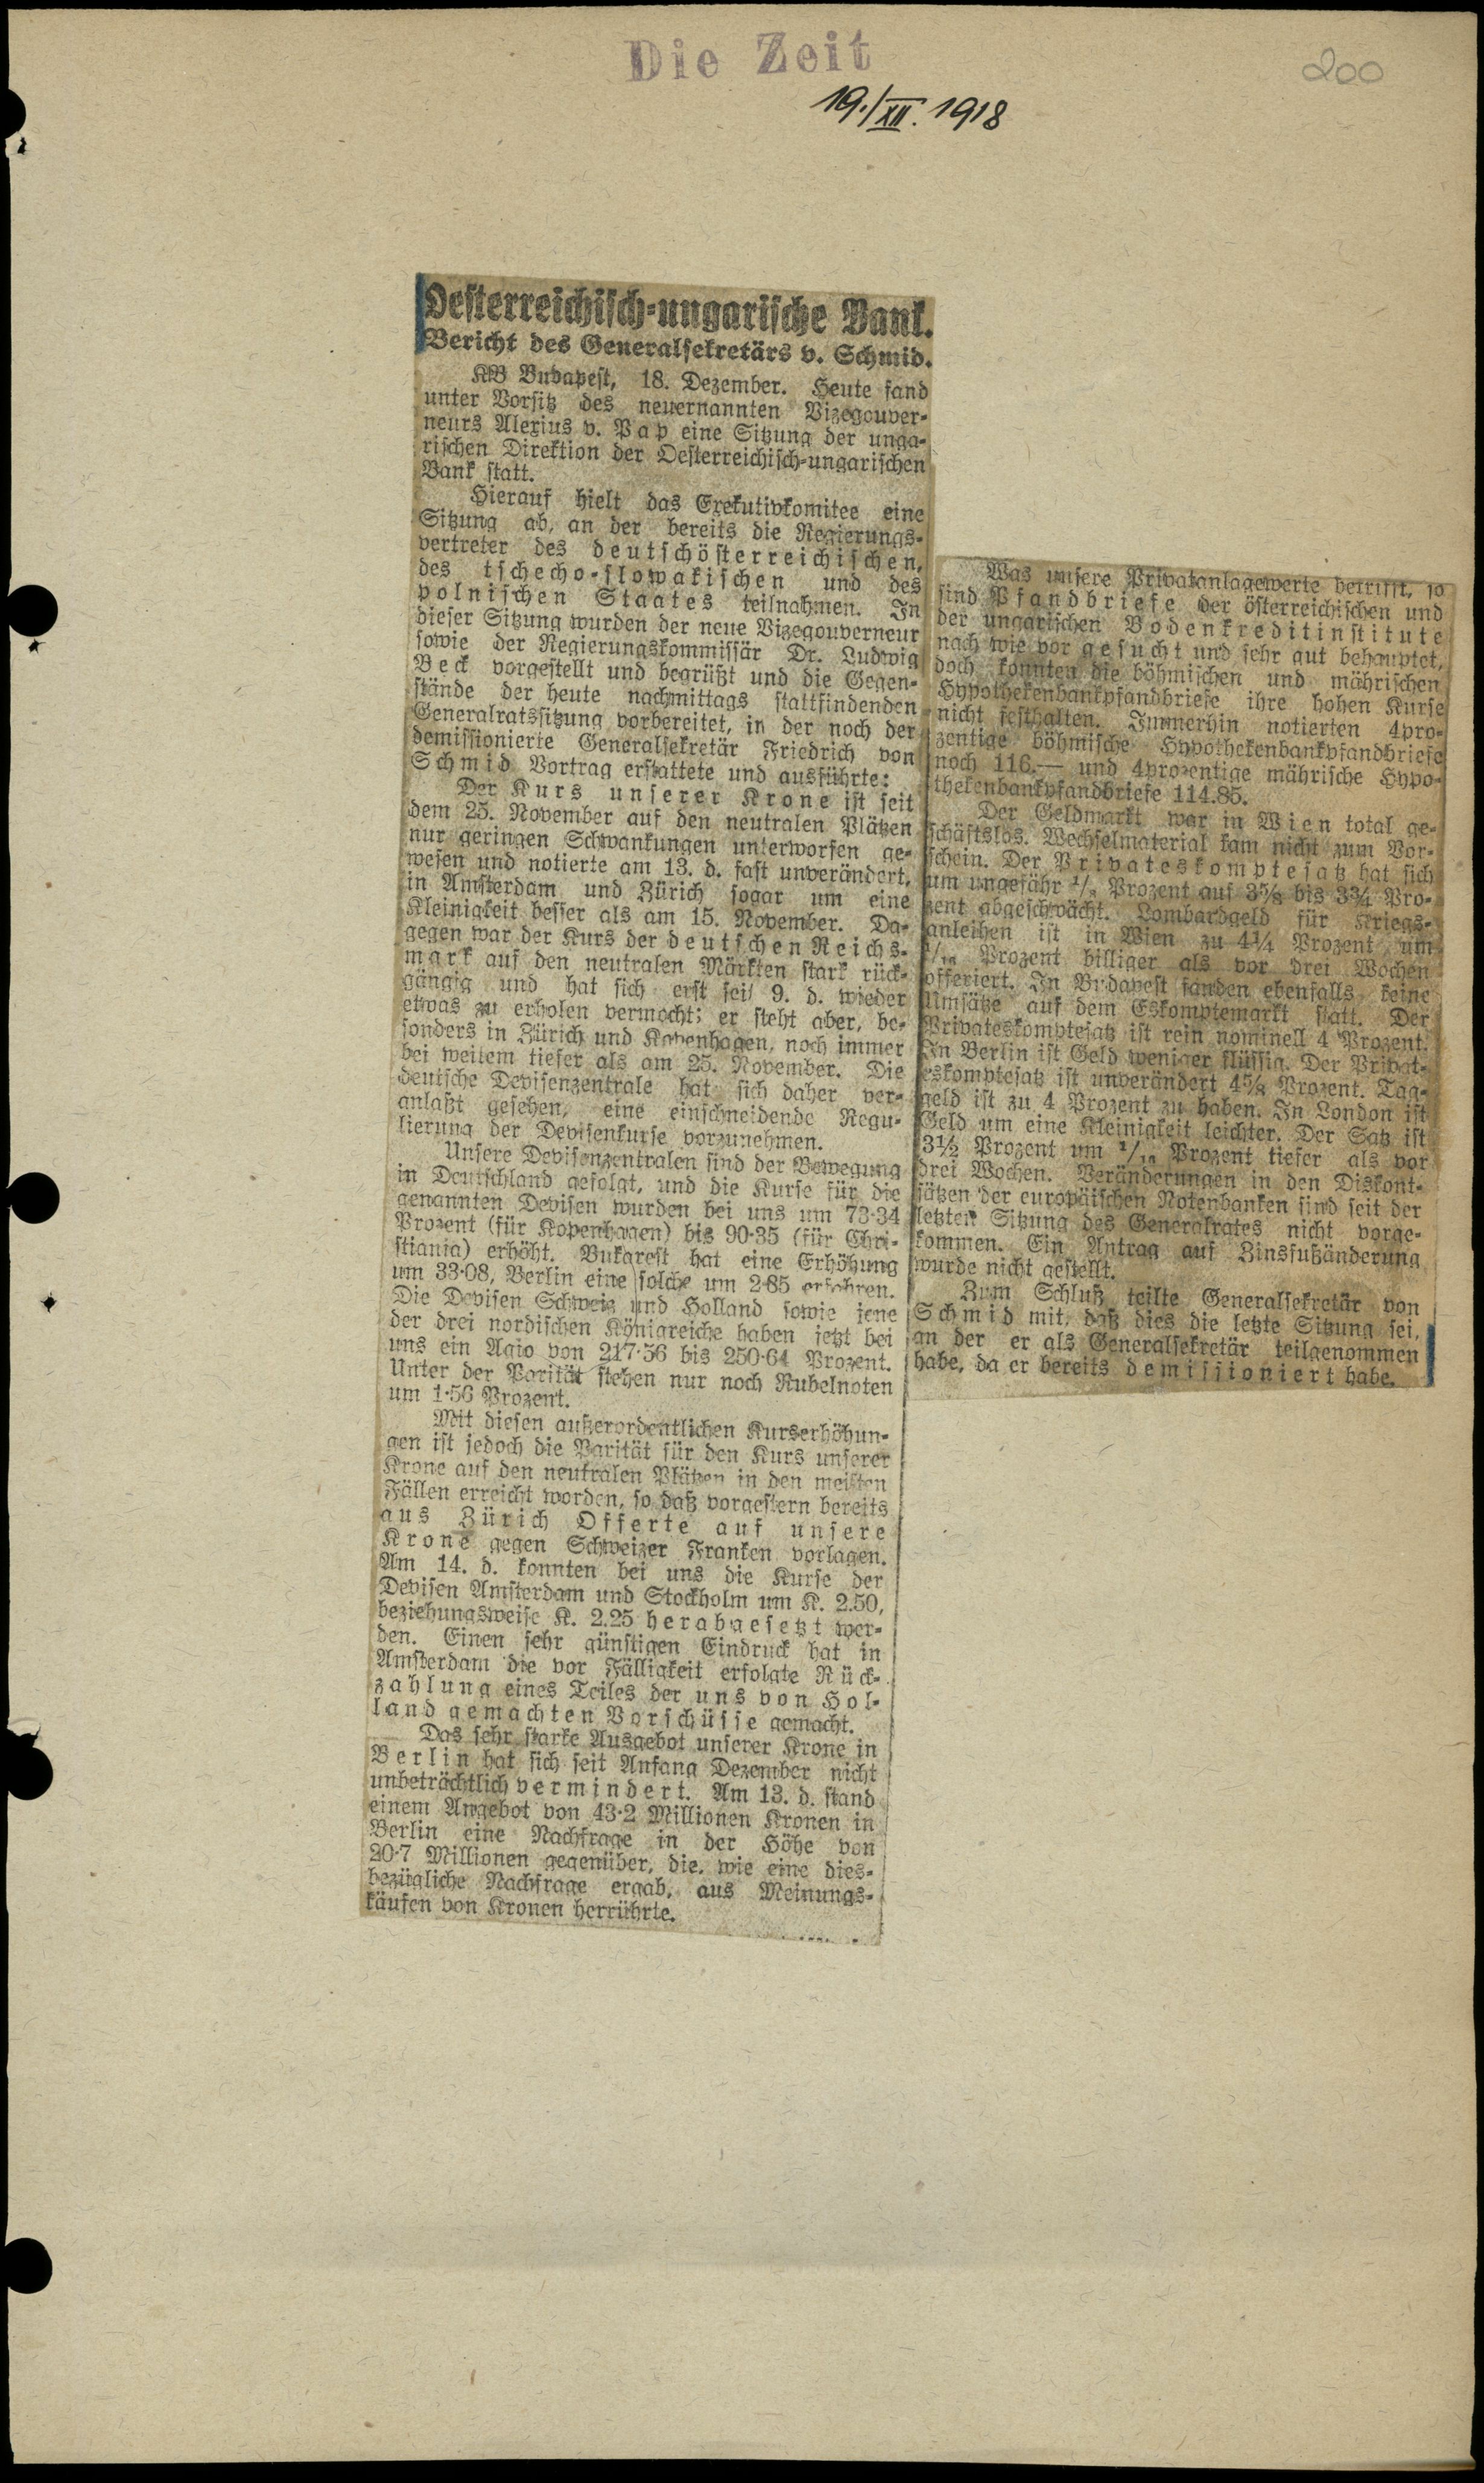 Die Zeit
200
19./XII. 1918
Oesterreichisch-ungarische Bank.
Bericht des Generalsekretärs v. Schmid.
KB Budapest, 18. Dezember. Heute fand
unter Vorsitz des neuernannten Vizegouver-
neurs Alexius v. Pap eine Sitzung der unga-
rischen Direktion der Oesterreichisch-ungarischen
Bank statt.
Hierauf hielt das Exekutivkomitee eine
Sitzung ab, an der bereits die Regierungs-
vertreter des deutschösterreichischen,
des tschecho-slowakischen und des
polnischen Staates teilnahmen. In
dieser Sitzung wurden der neue Vizegouverneur
sowie der Regierungskommissär Dr. Ludwig
Beck vorgestellt und begrüßt und die Gegen-
stände der heute nachmittags stattfindenden
Generalratssitzung vorbereitet, in der noch der
demissionierte Generalsekretär Friedrich von
Schmid Vortrag erstattete und ausführte:
Der Kurs unserer Krone ist seit
dem 25. November auf den neutralen Plätzen
nur geringen Schwankungen unterworfen ge-
wesen und notierte am 13. d. fast unverändert,
in Amsterdam und Zürich sogar um eine
Kleinigkeit besser als am 15. November. Da-
gegen war der Kurs der deutschen Reichs-
mark auf den neutralen Märkten stark rück-
gängig und hat sich erst seit 9. d. wieder
etwas zu erholen vermocht; er steht aber, be-
sonders in Zürich und Kopenhagen, noch immer
bei weitem tiefer als am 25. November. Die
deutsche Devisenzentrale hat sich daher ver-
anlaßt gesehen, eine einschneidende Regu-
lierung der Devisenkurse vorzunehmen.
Unsere Devisenzentralen sind der Bewegung
in Deutschland gefolgt, und die Kurse für die
genannten Devisen wurden bei uns um 73·34
Prozent (für Kopenhagen) bis 90·35 (für Chri-
stiania) erhöht. Bukarest hat eine Erhöhung
um 33·08, Berlin eine solche um 2·85 erfahren.
Die Devisen Schweiz und Holland sowie jene
der drei nordischen Königreiche haben jetzt bei
uns ein Agio von 217·56 bis 250·64 Prozent.
Unter der Parität stehen nur noch Rubelnoten
um 1·56 Prozent.
Mit diesen außerordentlichen Kurserhöhun-
gen ist jedoch die Parität für den Kurs unserer
Krone auf den neutralen Plätzen in den meisten
Fällen erreicht worden, so daß vorgestern bereits
aus Zürich Offerte auf unsere
Krone gegen Schweizer Franken vorlagen.
Am 14. d. konnten bei uns die Kurse der
Devisen Amsterdam und Stockholm um K. 2.50,
beziehungsweise K. 2.25 herabgesetzt wer-
den. Einen sehr günstigen Eindruck hat in
Amsterdam die vor Fälligkeit erfolgte Rück-
zahlung eines Teiles der uns von Hol-
land gemachten Vorschüsse gemacht.
Das sehr starke Ausgebot unserer Krone in
Berlin hat sich seit Anfang Dezember nicht
unbeträchtlich vermindert. Am 13. d. stand
einem Angebot von 43·2 Millionen Kronen in
Berlin eine Nachfrage in der Höhe von
20·7 Millionen gegenüber, die, wie eine dies-
bezügliche Nachfrage ergab, aus Meinungs-
käufen von Kronen herrührte.
Was unsere Privatanlagewerte betrifft, so
sind Pfandbriefe der österreichischen und
der ungarischen Bodenkreditinstitute
nach wie vor gesucht und sehr gut behauptet,
doch konnten die böhmischen und mährischen
Hypothekenbankpfandbriefe ihre hohen Kurse
nicht festhalten. Immerhin notierten 4pro-
zentige böhmische Hypothekenbankpfandbriefe
noch 116.— und 4prozentige mährische Hypo-
thekenbankpfandbriefe 114.85.
Der Geldmarkt war in Wien total ge-
schäftslos. Wechselmaterial kam nicht zum Vor-
schein. Der Privateskomptesatz hat sich
um ungefähr Prozent auf 3⅝ bis 3¾ Pro-
zent abgeschwächt. Lombardgeld für Kriegs-
anleihen ist in Wien zu 4¼ Prozent um
1/16 Prozent billiger als vor drei Wochen
offeriert. In Budapest fanden ebenfalls keine
Umsätze auf dem Eskomptemarkt statt. Der
Privateskomptesatz ist rein nominell 4 Prozent.
In Berlin ist Geld weniger flüssig. Der Privat-
eskomptesatz ist unverändert 4⅝ Prozent. Tag-
geld ist zu 4 Prozent zu haben. In London ist
Geld um eine Kleinigkeit leichter. Der Satz ist
3½ Prozent um 1/16 Prozent tiefer als vor
drei Wochen. Veränderungen in den Diskont-
sätzen der europäischen Notenbanken sind seit der
letzten Sitzung des Generalrates nicht vorge-
kommen. Ein Antrag auf Zinsfußänderung
wurde nicht gestellt.
Zum Schluß teilte Generalsekretär von
Schmid mit, daß dies die letzte Sitzung sei,
an der er als Generalsekretär teilgenommen
habe, da er bereits demissioniert habe.